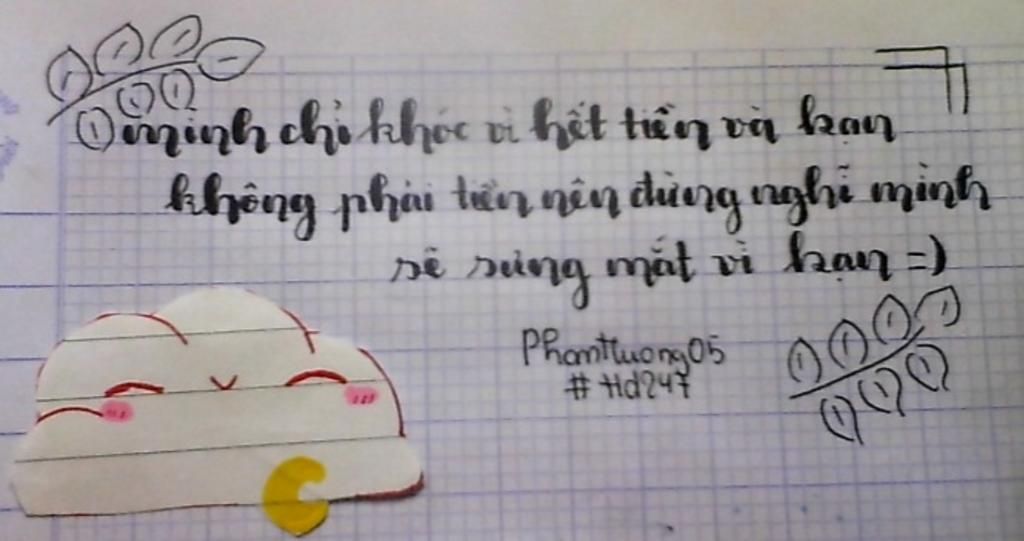 mình chỉ khóc vì hết tiền và bạn
không phải tiền nên đừng nghĩ mình
sẽ sưng mắt vì bạn =)
PhamHuong05
#Hd247